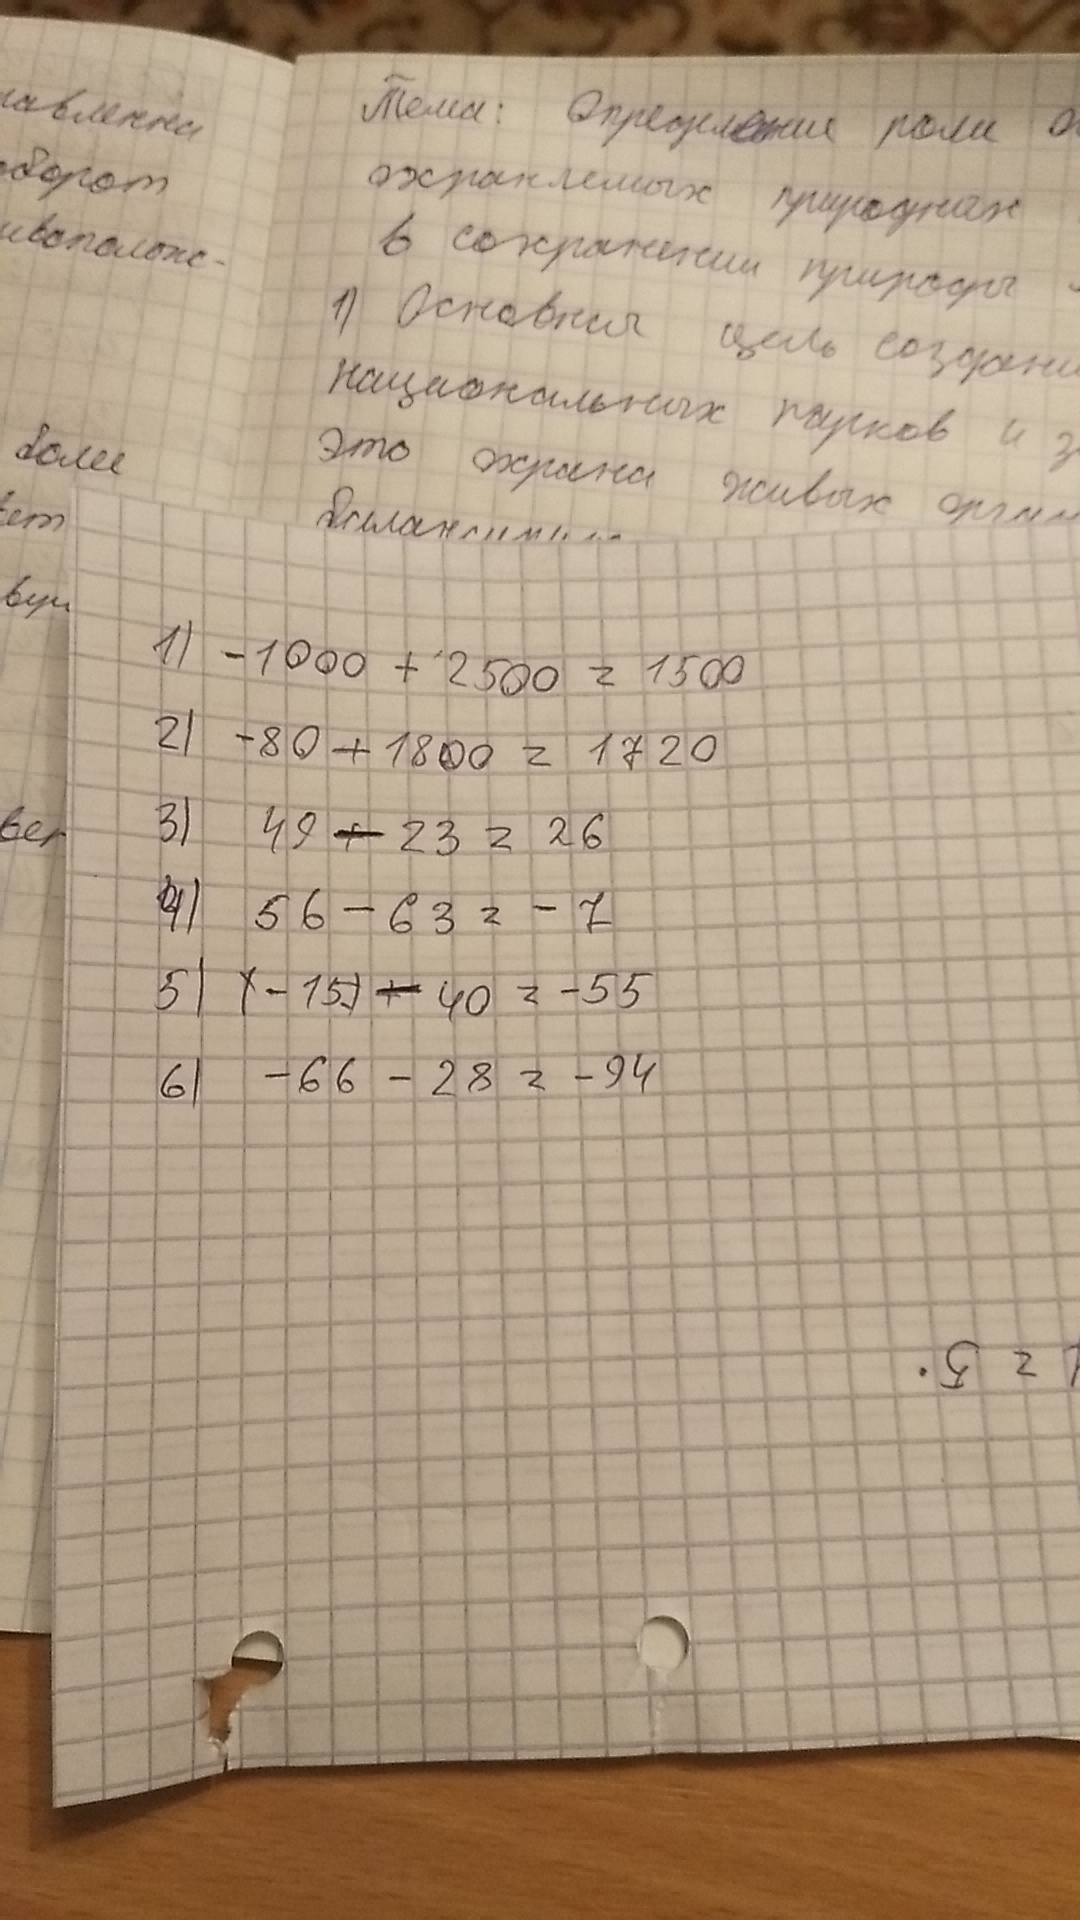 тавленна
оборот
ивополож-
более
вет
Тема: Определение роли о
охраняемых природных
в сохранении природы
1) Основная цель создани
национальных парков и з
это охрана живых орган
1) -1000 + 2500 = 1500
2) -80 + 1800 = 1720
3) 49 - 23 = 26
4) 56 - 63 = - 7
5) (-15) - 40 = -55
6) -66 - 28 = -94
= 5.